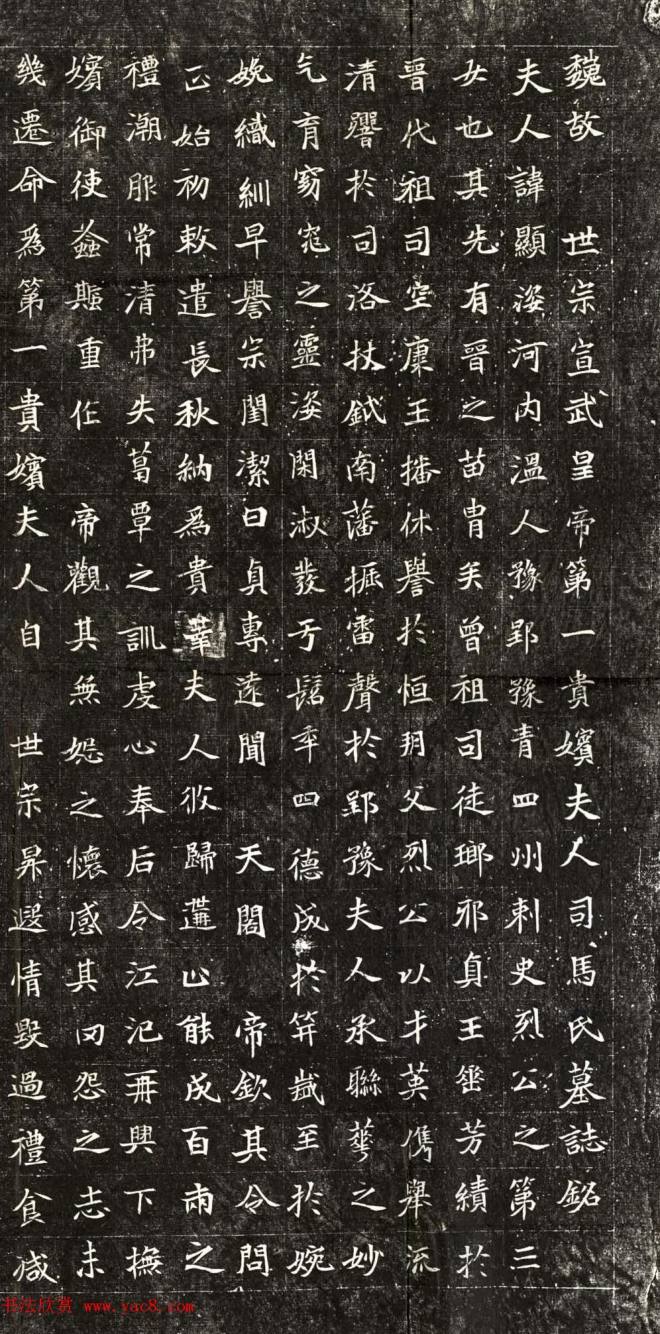 魏故 世宗宣武皇帝第一貴嬪夫人司馬氏墓誌銘
夫人諱顯姿河內溫人豫郢豫青四州刺史烈公之第三
女也其先有晉之苗胄矣曾祖司徒瑯邪貞王垂芳績於
晉代祖司空康王播休譽於恒朔父烈公以才英儁舉流
清響於司洛杖鉞南藩振雷聲於郢豫夫人承聯華之妙
气育窈窕之靈姿閑淑發于髫年四德成於笄歲至於婉
娩織紃早譽宗閨潔白貞專遠聞 天閣 帝欽其令問
正始初敕遣長秋納為貴華夫人攸歸遘止能成百兩之
禮澣服常清弗失葛覃之訓虔心奉后令江汜再興下撫
嬪御使螽斯重作 帝觀其無妒之懷感其罔怨之志未
幾遷命為第一貴嬪夫人自 世宗昇遐情毀過禮食減
书法欣赏 www.yac8.com